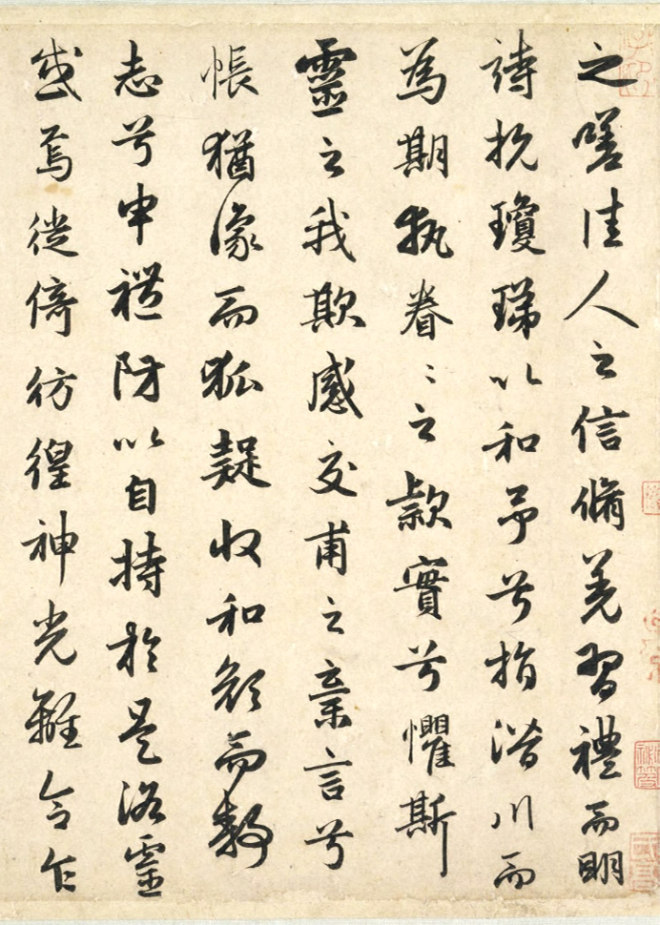 之嗟佳人之信脩羌習禮而明
詩抗瓊珶以和予兮指潛川而
為期執眷〻之款實兮懼斯
靈之我欺感交甫之棄言兮
悵猶豫而狐疑收和顏而靜
志兮申禮防以自持於是洛靈
感焉徙倚彷徨神光離合乍